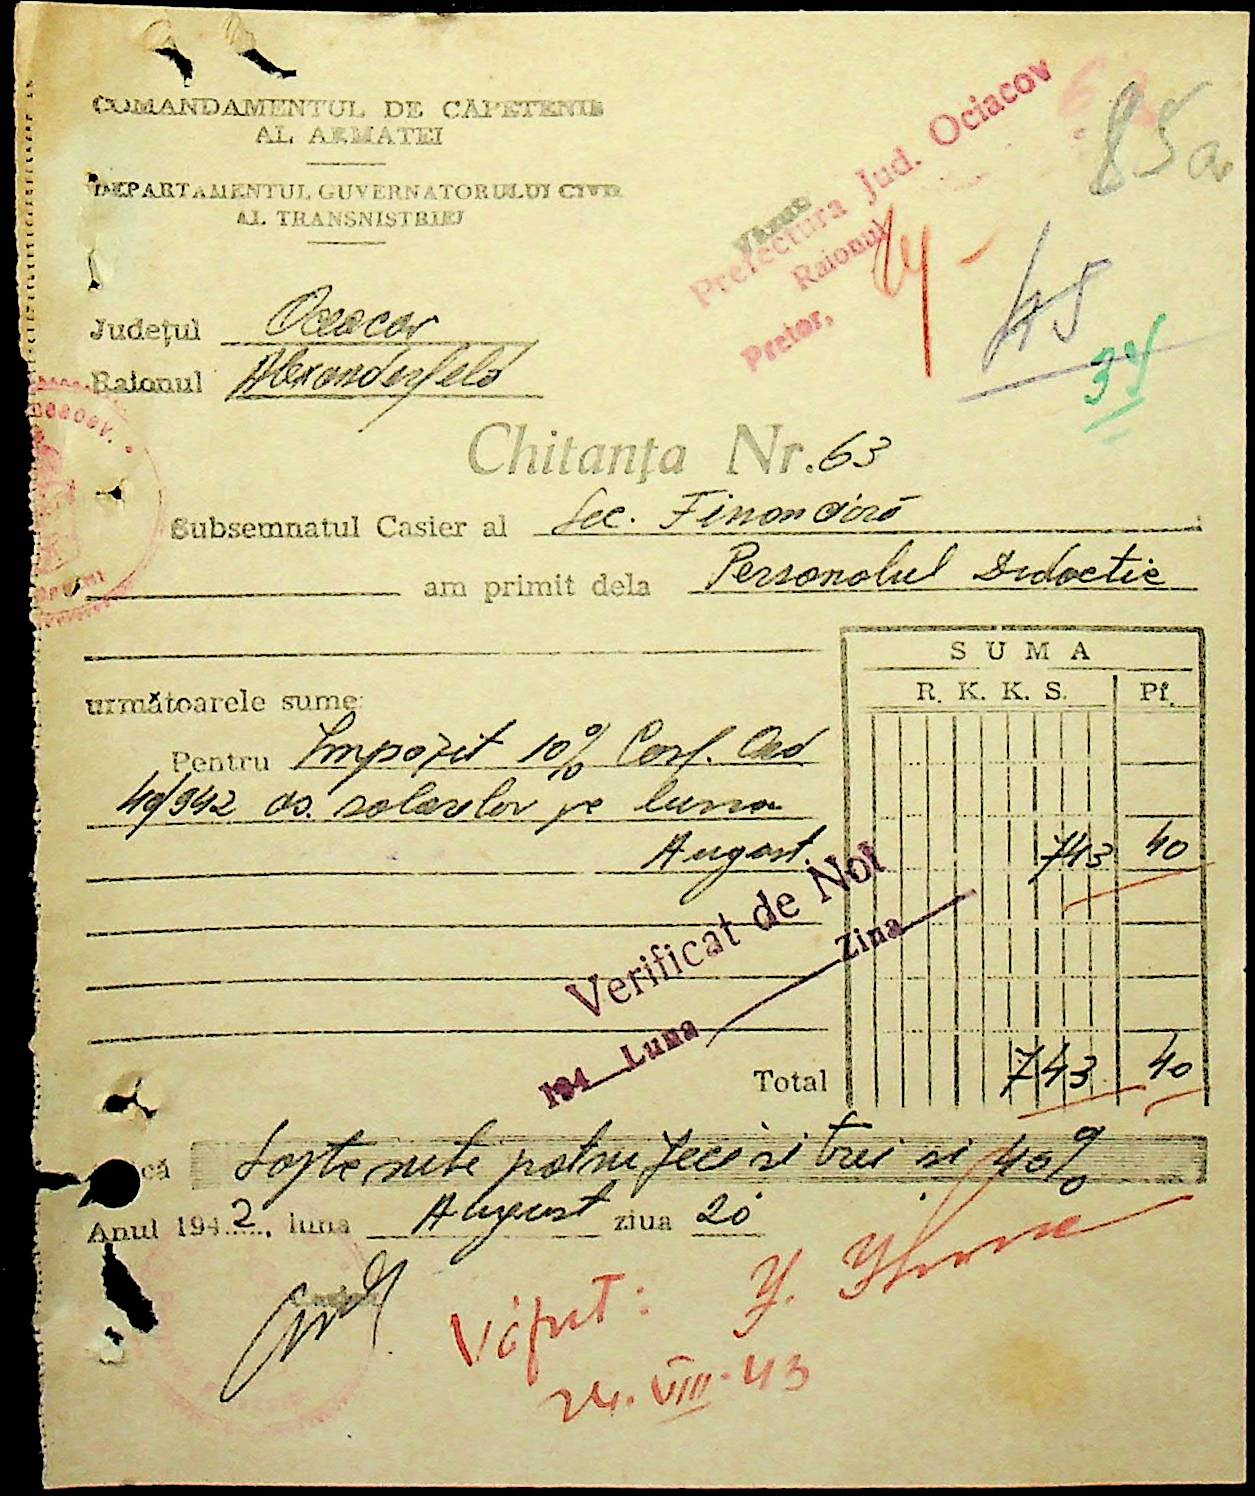 COMANDAMENTUL DE CAPETENIE
AL ARMATEI
DEPARTAMENTUL GUVERNATORULUI CIVIL
AL TRANSNISTRIEI
Prefectura Jud. Ociacov
Raionul
Pretor,
85a
45
34
Județul Oceacov
Raionul Alexanderfeld
Chitanța Nr. 63
Subsemnatul Casier al Sec. Financiră
am primit dela Personalul Didactic
SUMA
R. K. K. S. Pf.
următoarele sume:
Pentru Impozit 10% Conf. Ord
49/942 as. salarelor pe luna
August 743 40
Verificat de Noi
194 Luna Ziua
Total 743 40
că Șapte sute patru zeci și trei și 40%
Anul 1942, luna August ziua 20
Văzut:
24.VIII.43